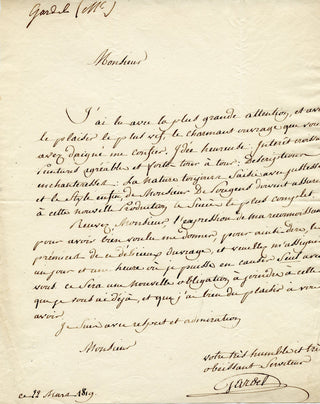 Gardel (Mr.)
Monsieur
J'ai lu avec la plus grande attention, et avec
le plaisir le plus vif, le charmant ouvrage que vous
avez daigné me confier. Idée heureuse. Intérêt
peinture agréable et forte tour à tour. Descriptions
enchanteresses. La nature toujours saisie avec
et le style enfin, de Monsieur de doivent assurer
à cette nouvelle Production, le Succès le plus complet.
Recevez, Monsieur, l'expression de ma reconnaissance
pour avoir bien voulu me donner, pour ainsi dire, les
prémices de ce délicieux ouvrage, et veuillez m'assigner
un jour et une heure où je puisse en causer seul avec
vous. ce sera une nouvelle obligation à joindre à celles
que je vous ai déjà, et que j'ai bien du plaisir à vous
avoir.
Je suis avec respect et admiration
Monsieur
votre très humble et très
obéissant Serviteur
Gardel
ce 22 Mars 1819.